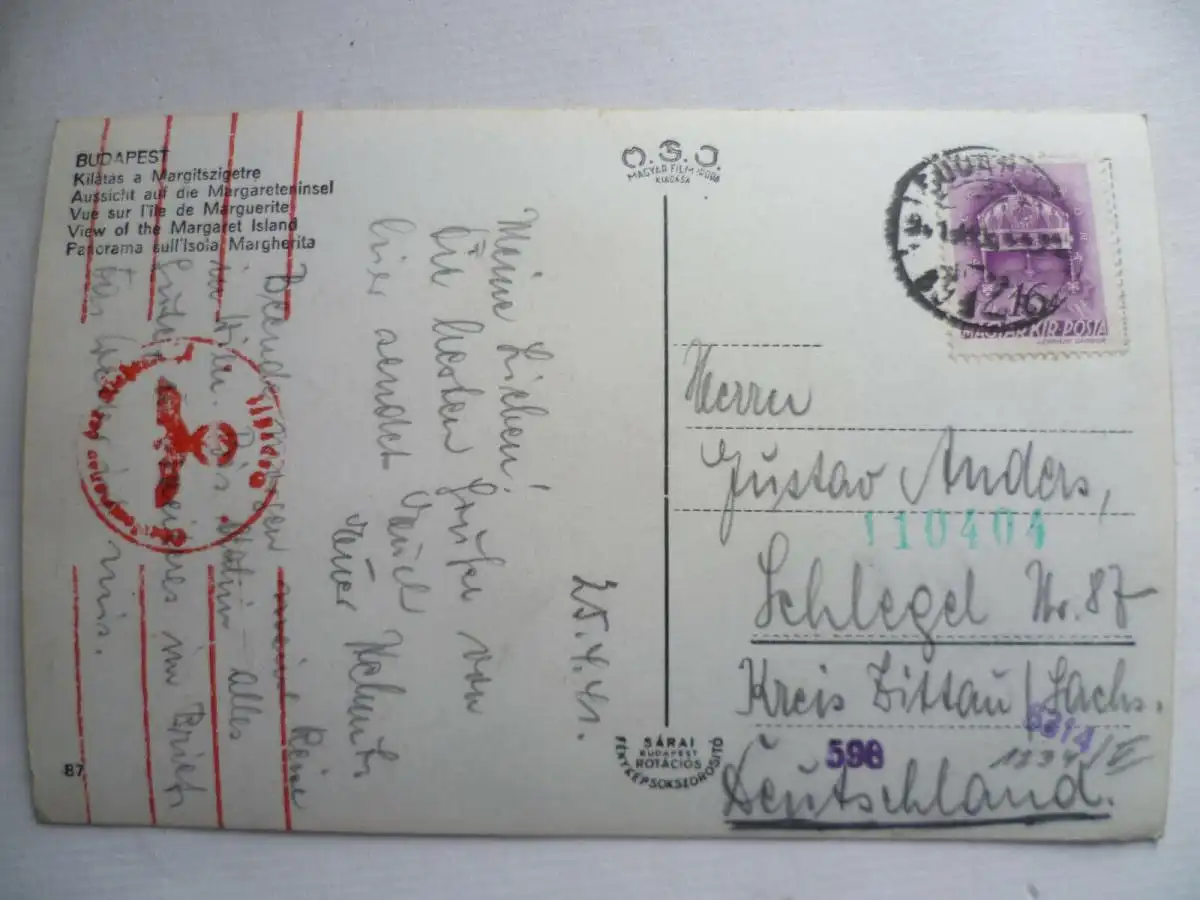 BUDAPEST
Kilátas a Margitszigetre
Aussicht auf die Margareteninsel
Vue sur l'île de Marguerite
View of the Margaret Island
Panorama sull'Isola Margherita
MAGYAR FILM IRODA
KIADÁSA
MAGYAR KIR. POSTA
16
25.4.41.
Meine Lieben!
Die besten Grüße von
hier sendet Euch
Euer
Beende morgen meine Reise
in Wien. Bis dahin alles
Gute. weiteres im Brief
87
SÁRAI
BUDAPEST
ROTÁCIÓS
FÉNYKÉPSOKSZOROSITÓ
Herrn
Gustav Anders,
110404
Schlegel Nr. 87
Kreis Zittau/Sachs.
598
Deutschland.